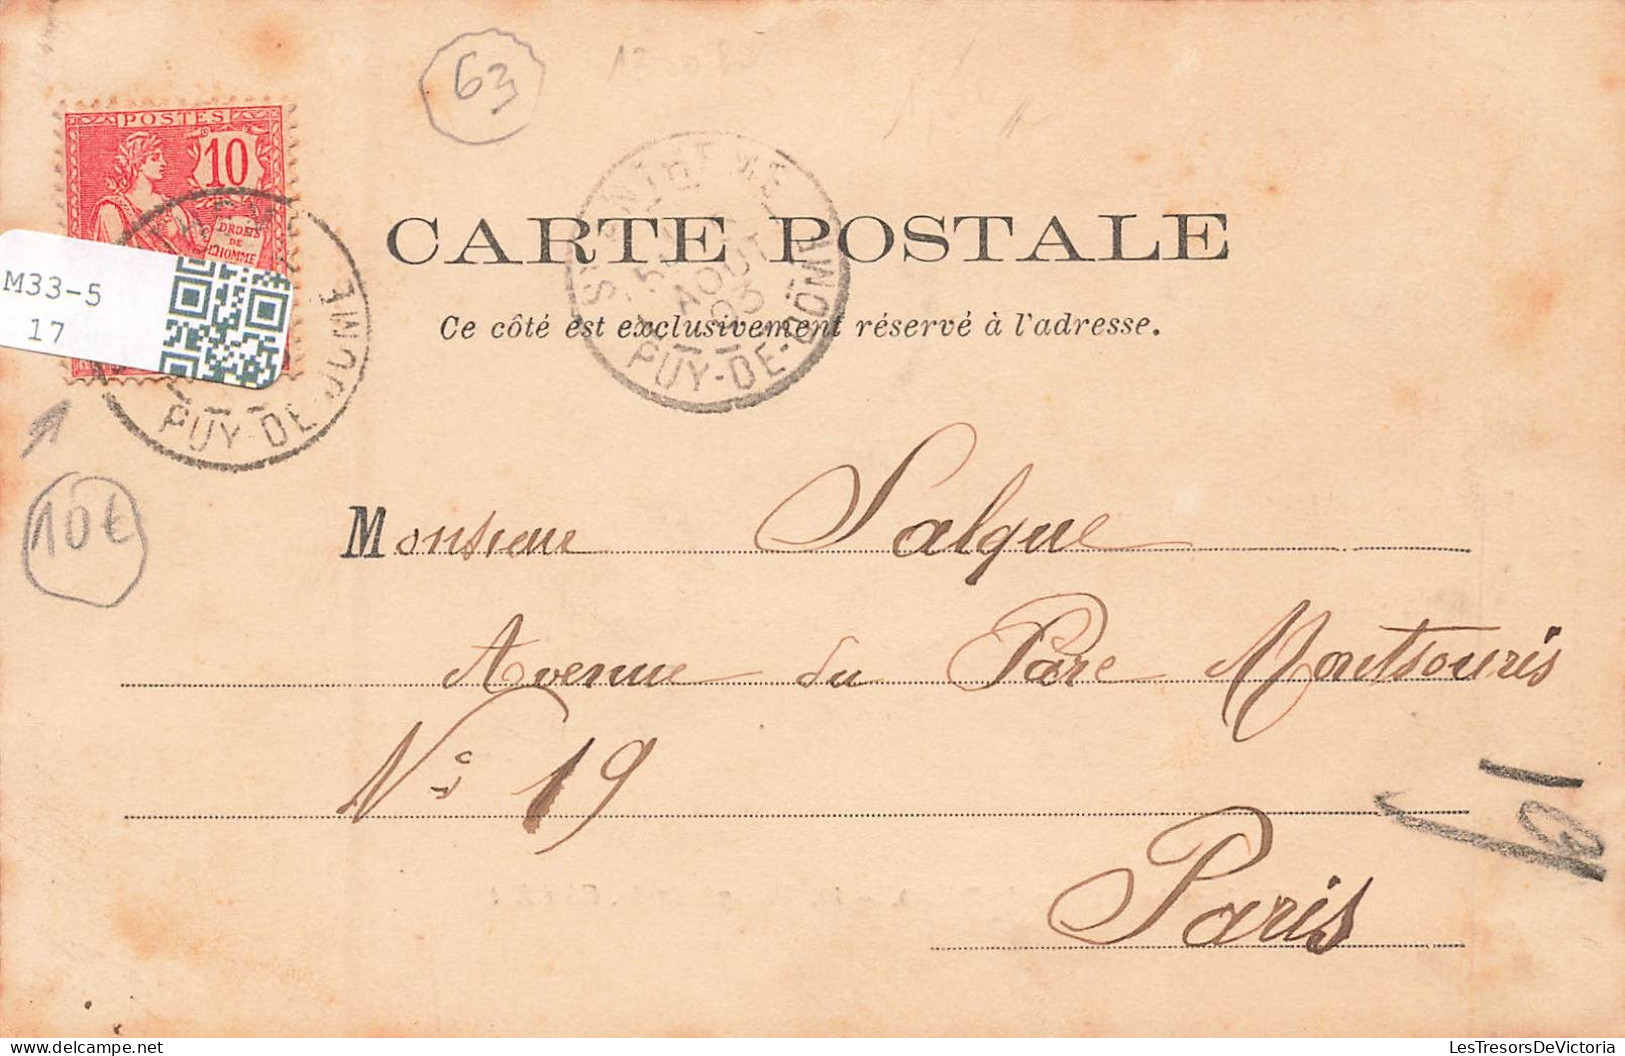 63
POSTES
10
DROITS
DE
L'HOMME
M33-5
17
PUY-DE-DOME
AOUT
03
PUY-DE-DOME
CARTE POSTALE
Ce côté est exclusivement réservé à l'adresse.
10€
Monsieur Salque
Avenue du Parc Montsouris
No 19
Paris
19
LesTresorsDeVictoria